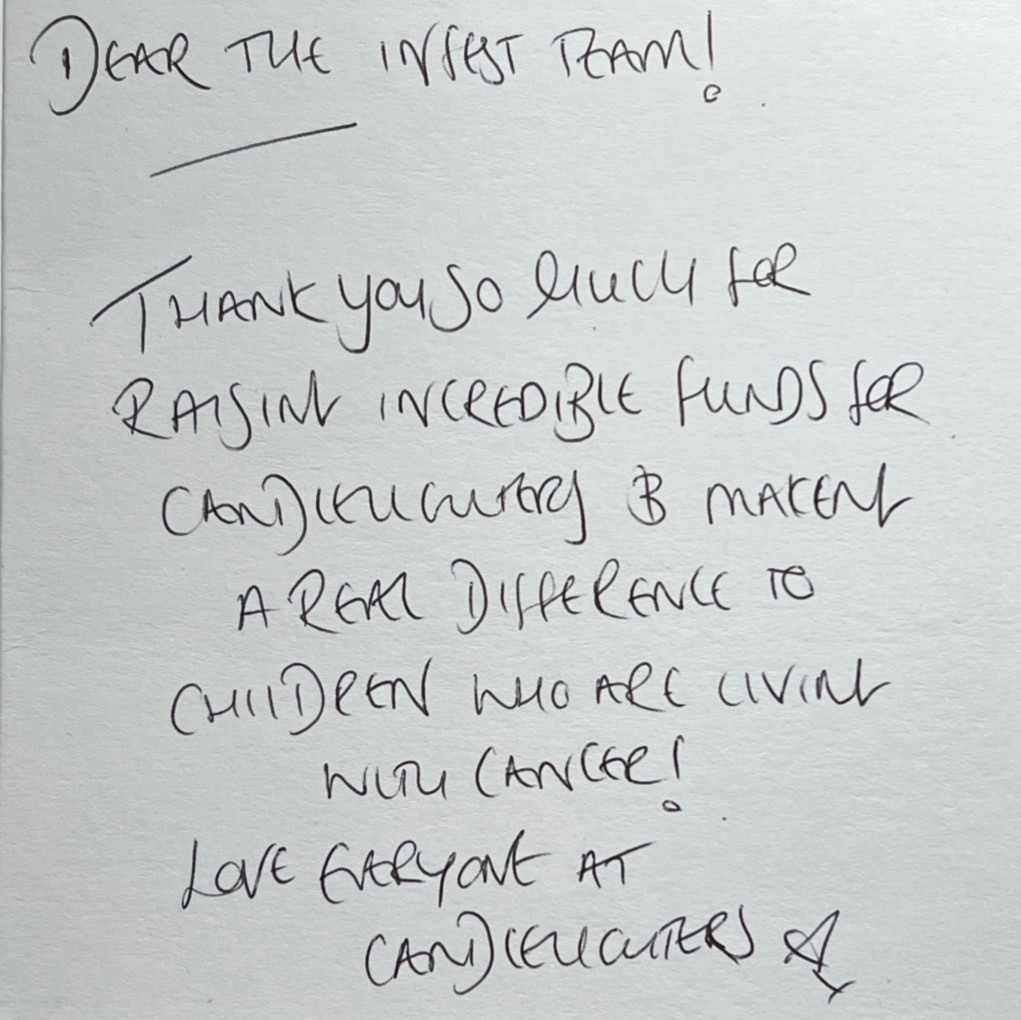 DEAR THE INFEST TEAM!
THANK YOU SO MUCH FOR
RAISING INCREDIBLE FUNDS FOR
CANDLELIGHTERS & MAKING
A REAL DIFFERENCE TO
CHILDREN WHO ARE LIVING
WITH CANCER!
LOVE EVERYONE AT
CANDLELIGHTERS